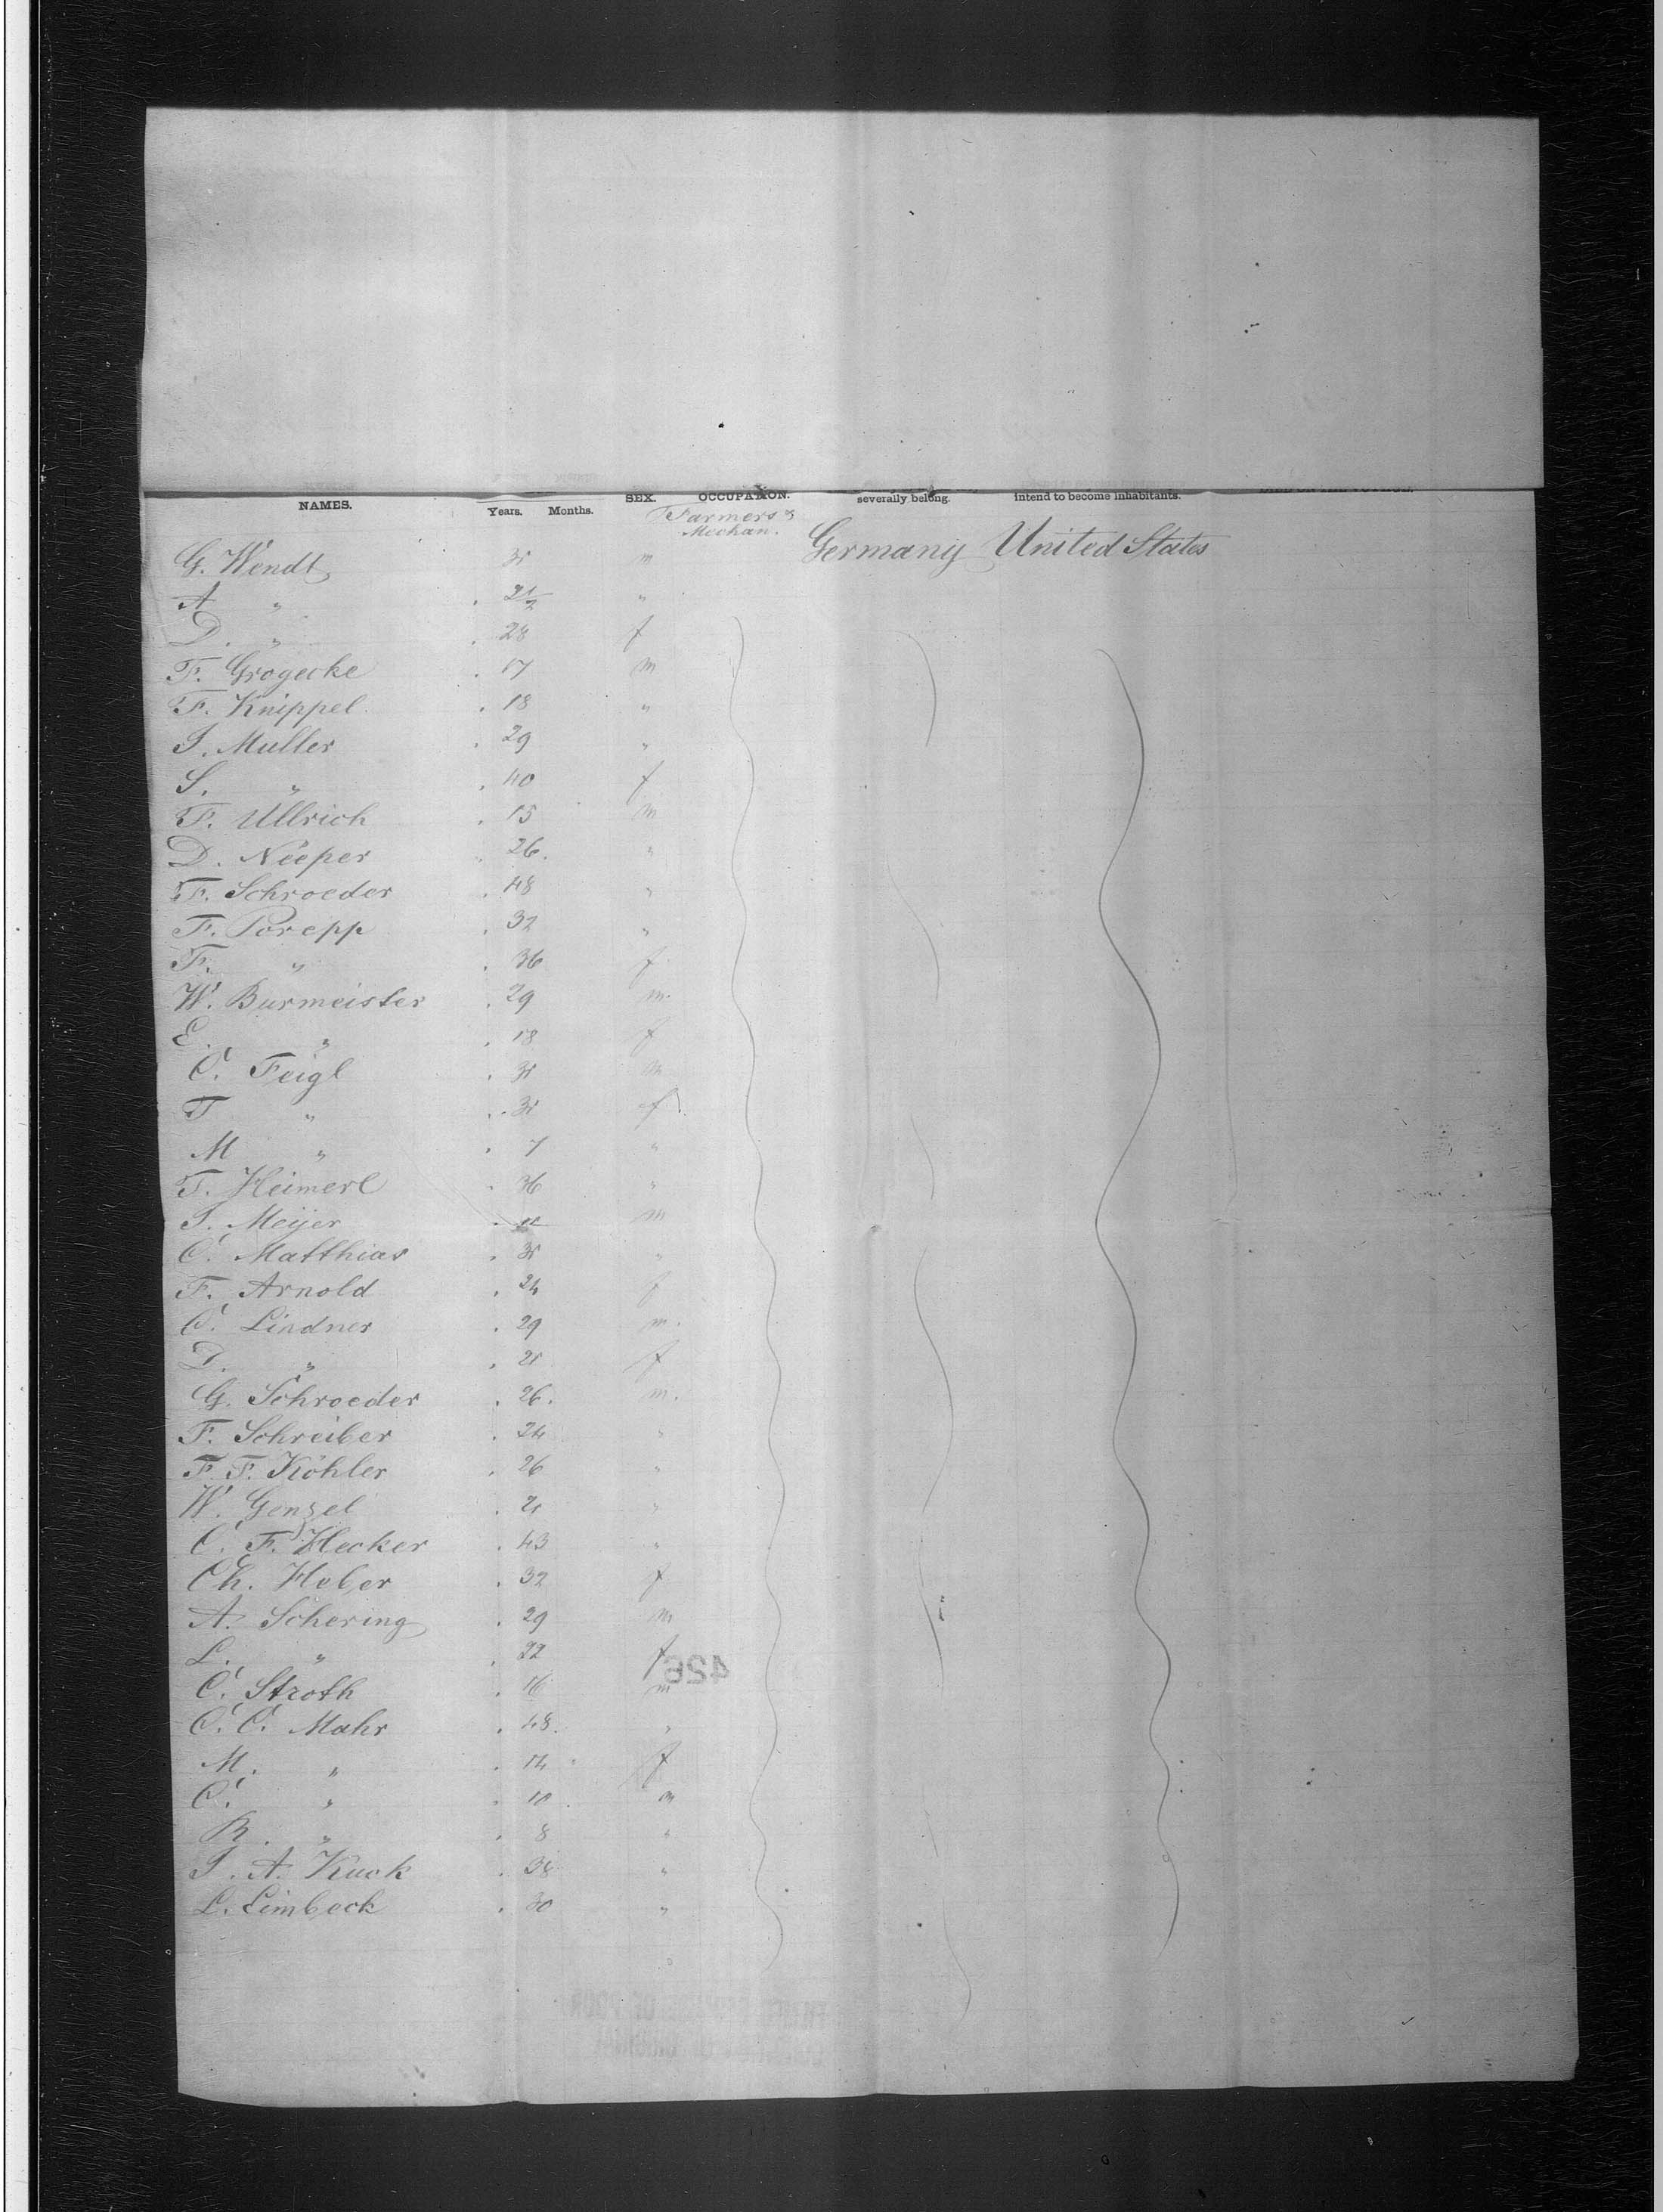 NAMES. Years. Months. SEX. OCCUPATION. severally belong. intend to become inhabitants.
Farmers &
Mechan.
G. Wendt 31 m Germany United States
A " 2 1/2 "
D. " 28 f
F. Grogecke 17 m
F. Knippel 18 "
J. Muller 29 "
S. " 40 f
F. Ullrich 15 m
D. Neeper 26. "
F. Schroeder 48 "
F. Porepp 32 "
F. " 36 f
W. Burmeister 29 m.
E. " 18 f
C. Feigl 31 m
T " 31 f
M " 7 "
T. Heimerl 36 "
J. Meijer m
C. Matthias 31 "
F. Arnold 24 f
C. Lindner 29 m.
D. " 21 f
G. Schroeder 26. m.
F. Schreiber 24 "
F. F. Köhler 26 "
W. Genzel 21 "
C. F. Hecker 43 "
Ch. Heber 32 f
A. Schering 29 m
L. " 22 f
426
C. Stroth 16 m
C. C. Mahr 48. "
M. " 14 f
C. " 10 m
R. " 8 "
J. A. Kuck 38 "
L. Limbeck 30 "